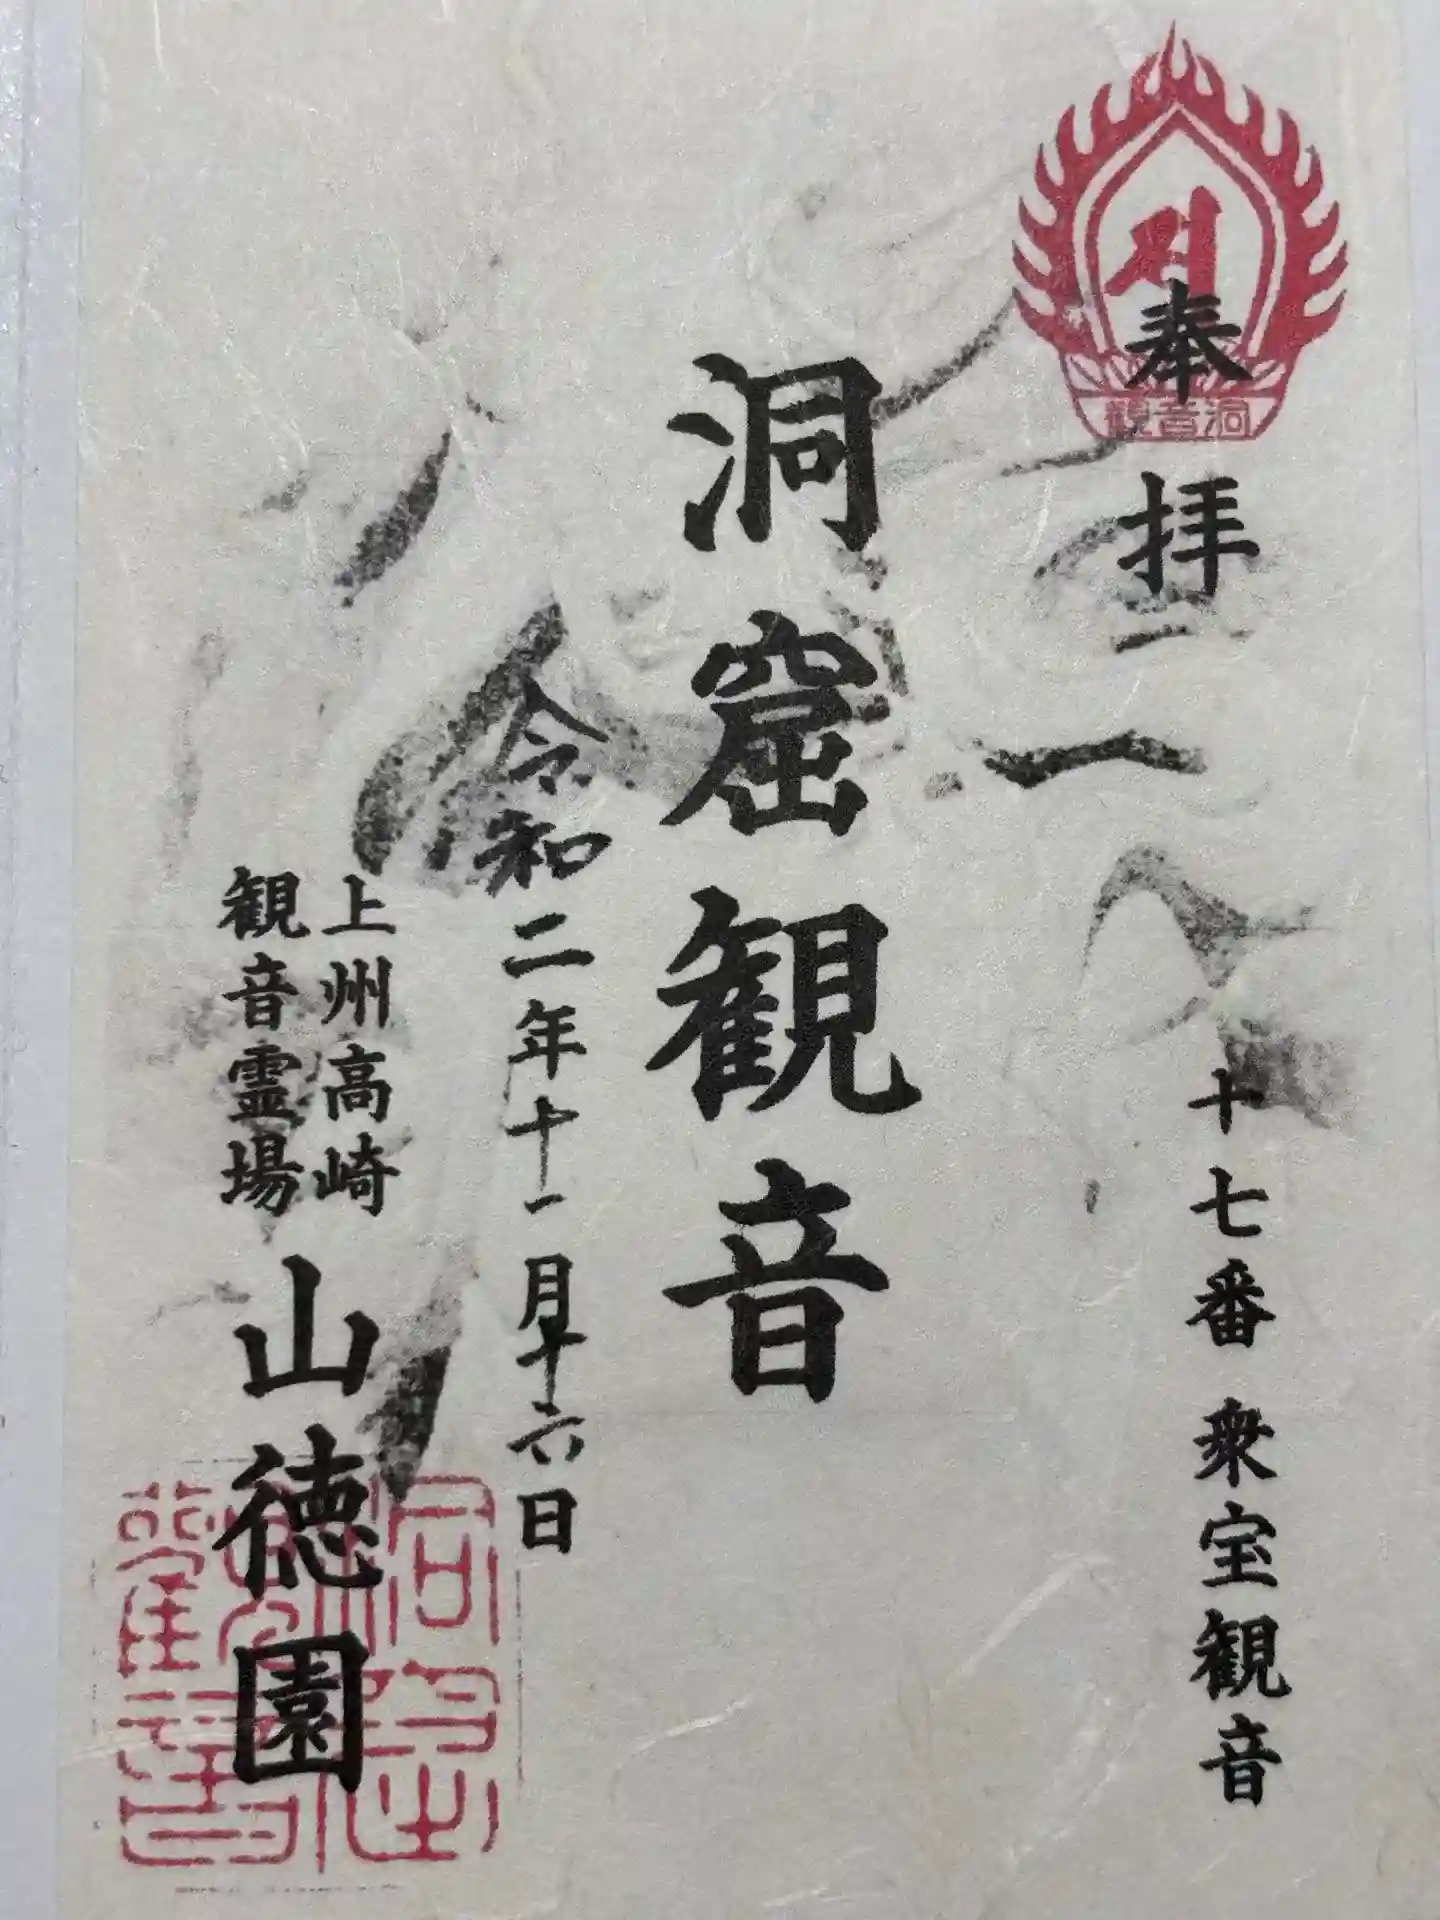 奉拝
観音洞
十七番 衆宝観音
洞窟観音
令和二年十一月十六日
上州高崎
観音霊場
山徳園